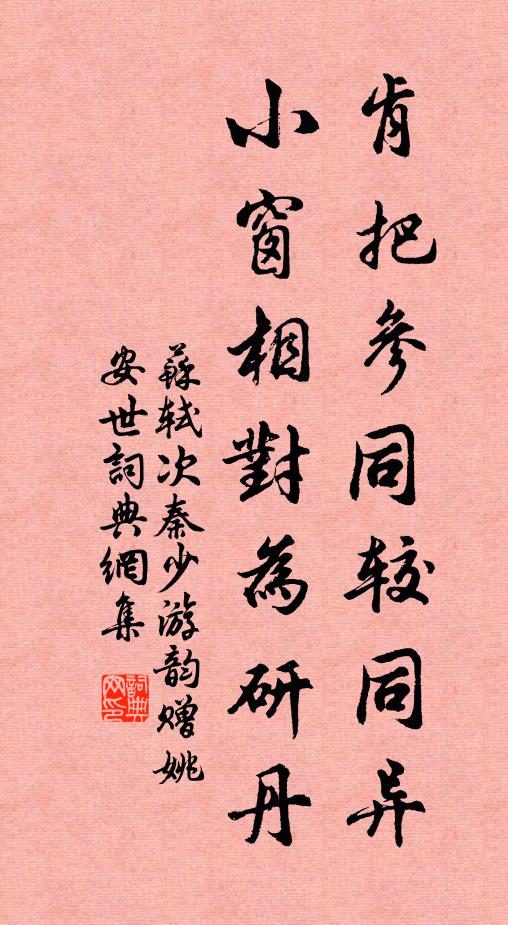 肯把參同較同异
小窗相對為研丹
蘇轼次秦少游韵赠姚
安世詞典網集
詞典网印